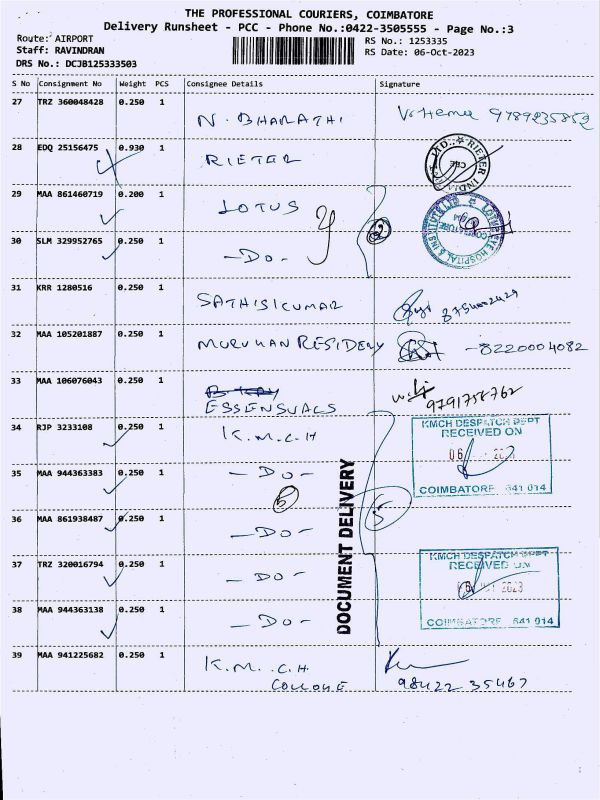 THE PROFESSIONAL COURIERS, COIMBATORE
Delivery Runsheet - PCC - Phone No.:0422-3505555 - Page No.:3
Route: AIRPORT
RS No.: 1253335
Staff: RAVINDRAN
RS Date: 06-Oct-2023
DRS No.: DCJB125333503
S No Consignment No Weight PCS Consignee Details Signature
27 TRZ 360048428 0.250 1 N. BHARATHI 9789235852
28 EDQ 25156475 0.930 1 RIETER
RIETER INDIA
29 MAA 861460719 0.200 1 LOTUS
30 SLM 329952765 0.250 1 -Do-
2
31 KRR 1280516 0.250 1 SATHISKUMAR
32 MAA 105201887 0.250 1 MURUHAN RESIDENY -8220004082
33 MAA 106076043 0.250 1 ESSENSUALS 9791758762
34 RJP 3233108 0.250 1 K.M.C.H
KMCH DESPATCH DEPT
RECEIVED ON
COIMBATORE 641 014
35 MAA 944363383 0.250 1 -Do-
36 MAA 861938487 0.250 1 -Do-
5
37 TRZ 320016794 0.250 1 -Do-
KMCH DESPATCH DEPT
RECEIVED ON
2023
COIMBATORE 641 014
38 MAA 944363138 0.250 1 -Do-
DOCUMENT DELIVERY
39 MAA 941225682 0.250 1 K.M.C.H
COLLOGE 98422 35467